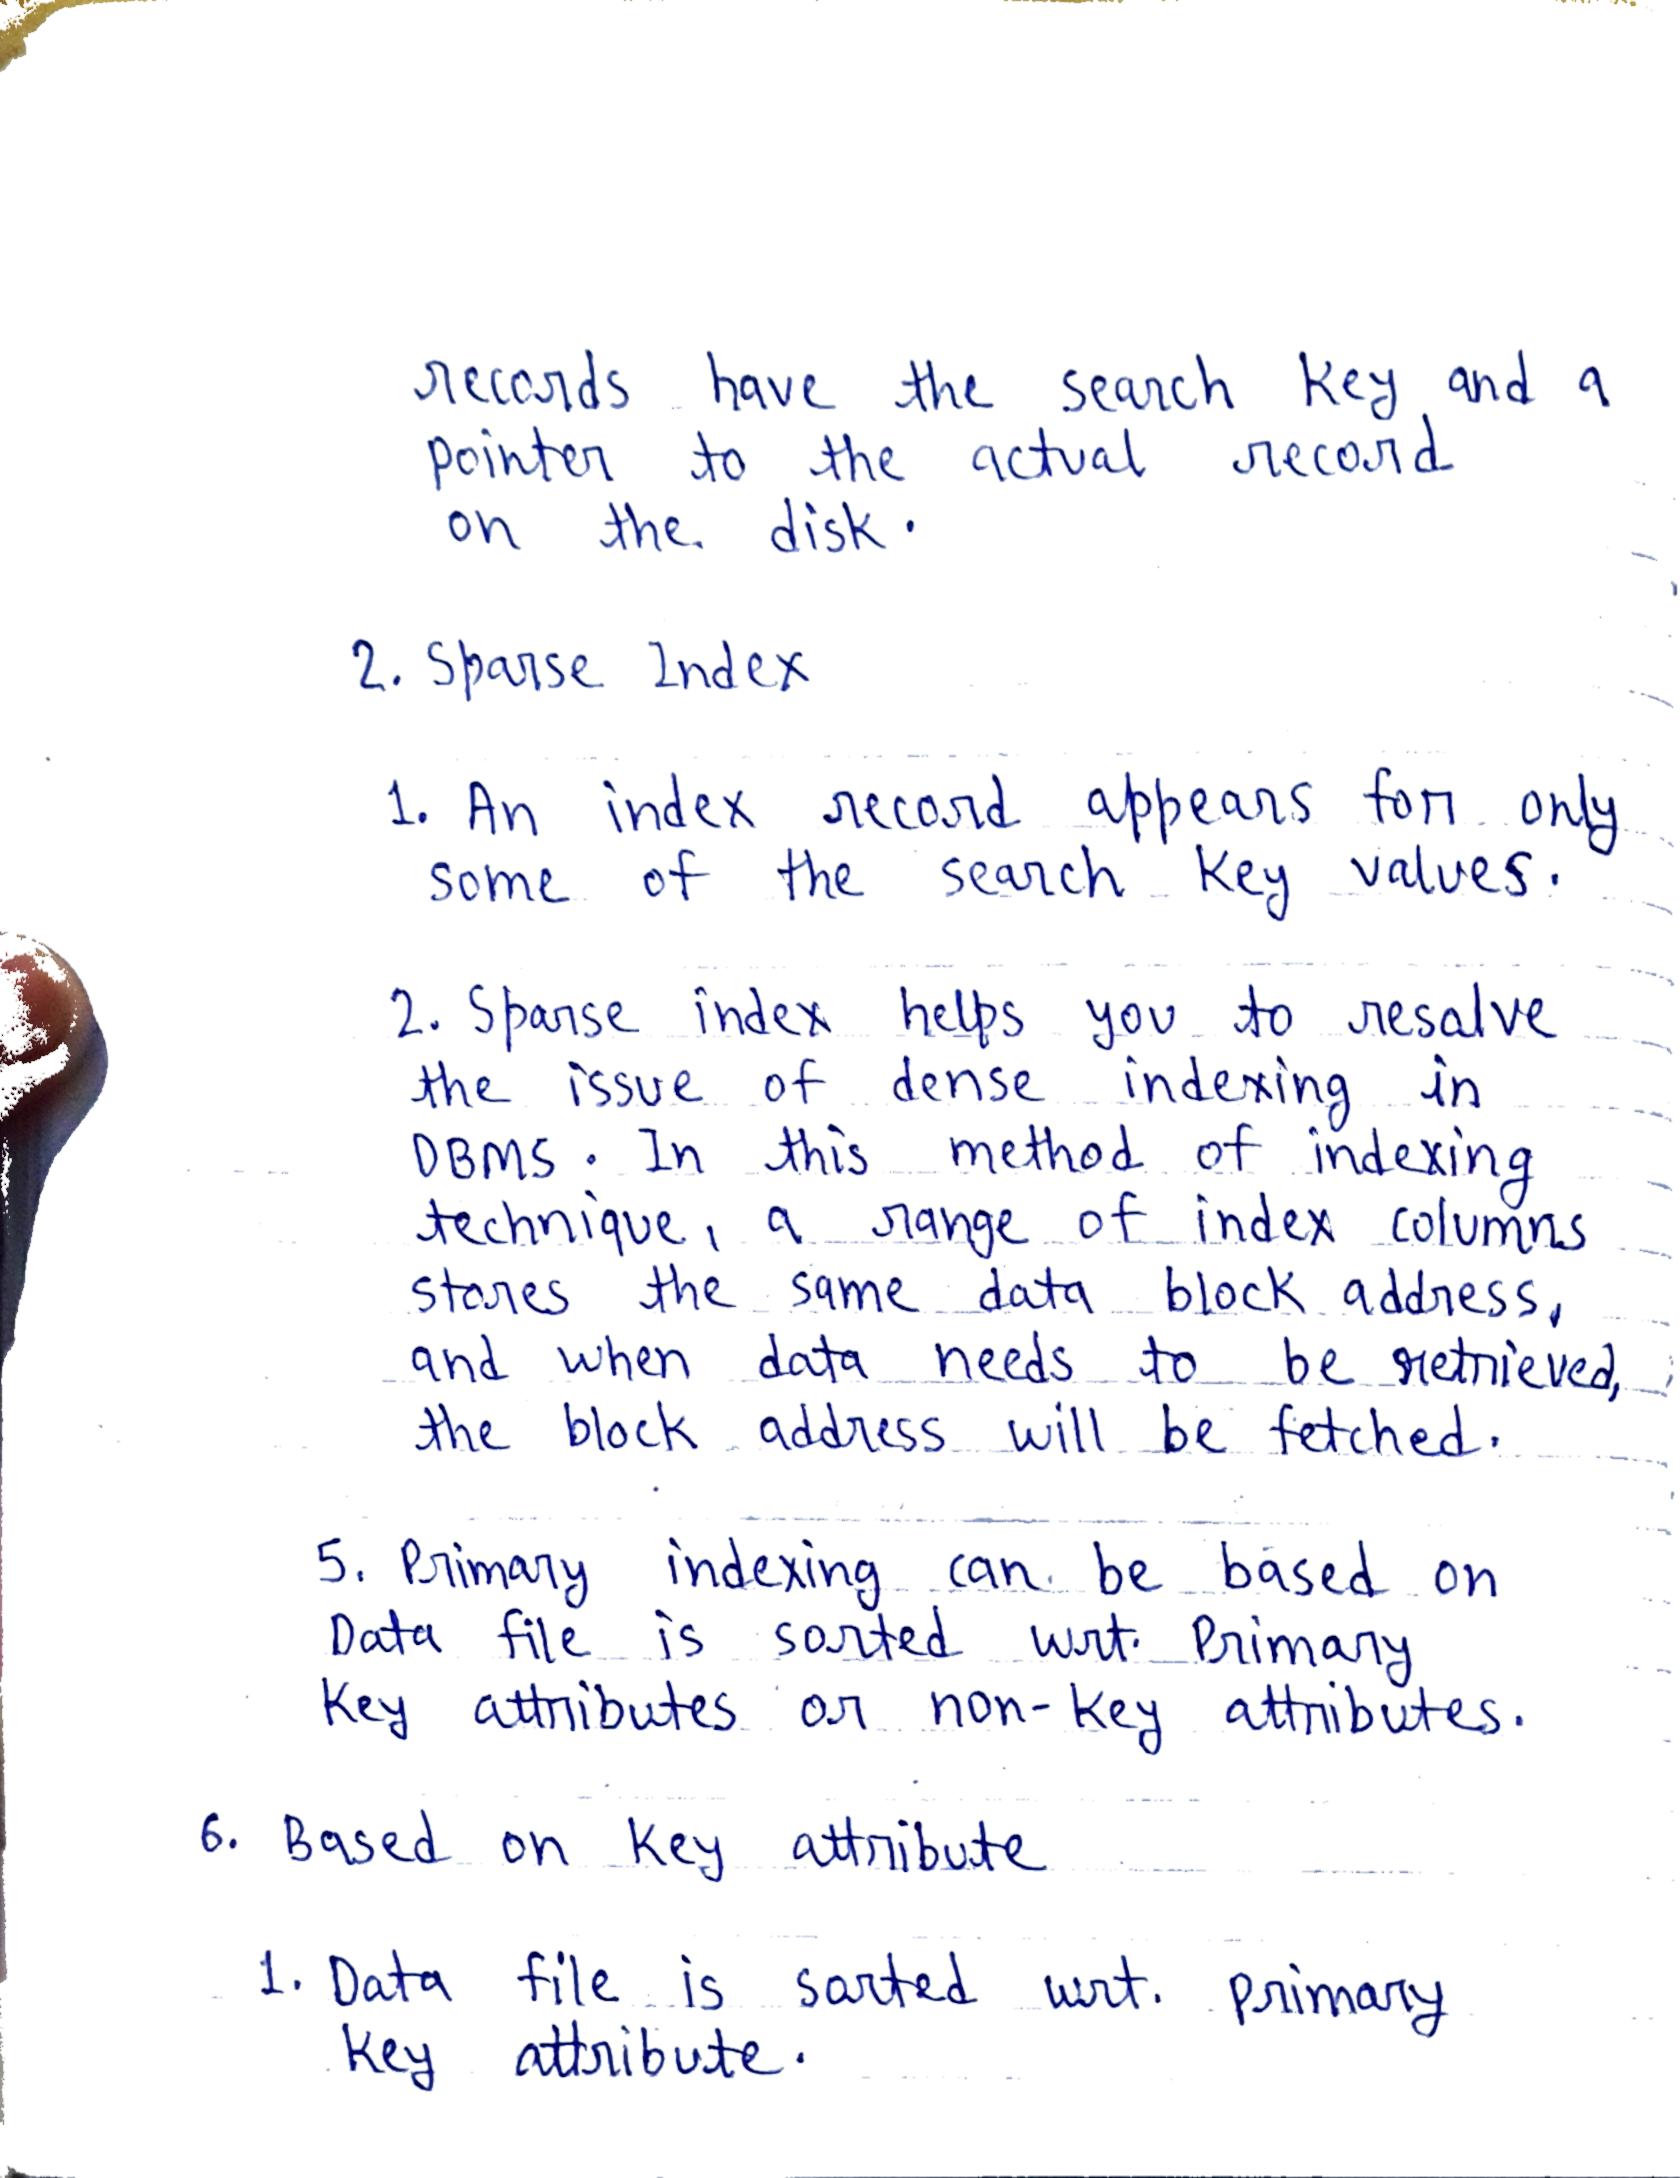 records have the search key and a
pointer to the actual record
on the disk.
2. Sparse Index
1. An index record appears for only
some of the search key values.
2. Sparse index helps you to resalve
the issue of dense indexing in
DBMS. In this method of indexing
technique, a range of index columns
stores the same data block address,
and when data needs to be retrieved,
the block address will be fetched.
5. Primary indexing can be based on
Data file is sorted wrt. Primary
Key attributes or non-key attributes.
6. Based on Key attribute
1. Data file is sorted wrt. primary
key attribute.